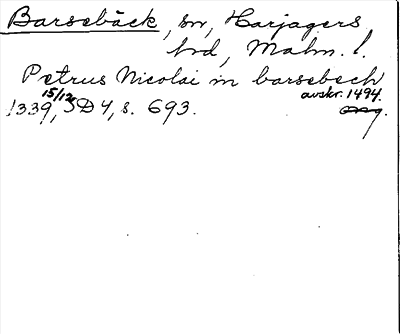 Barsebäck, sn, Harjagers
hd, Malm. l.
Petrus Nicolai in barsebech
15/12 avskr. 1494.
1339, SD 4, s. 693.